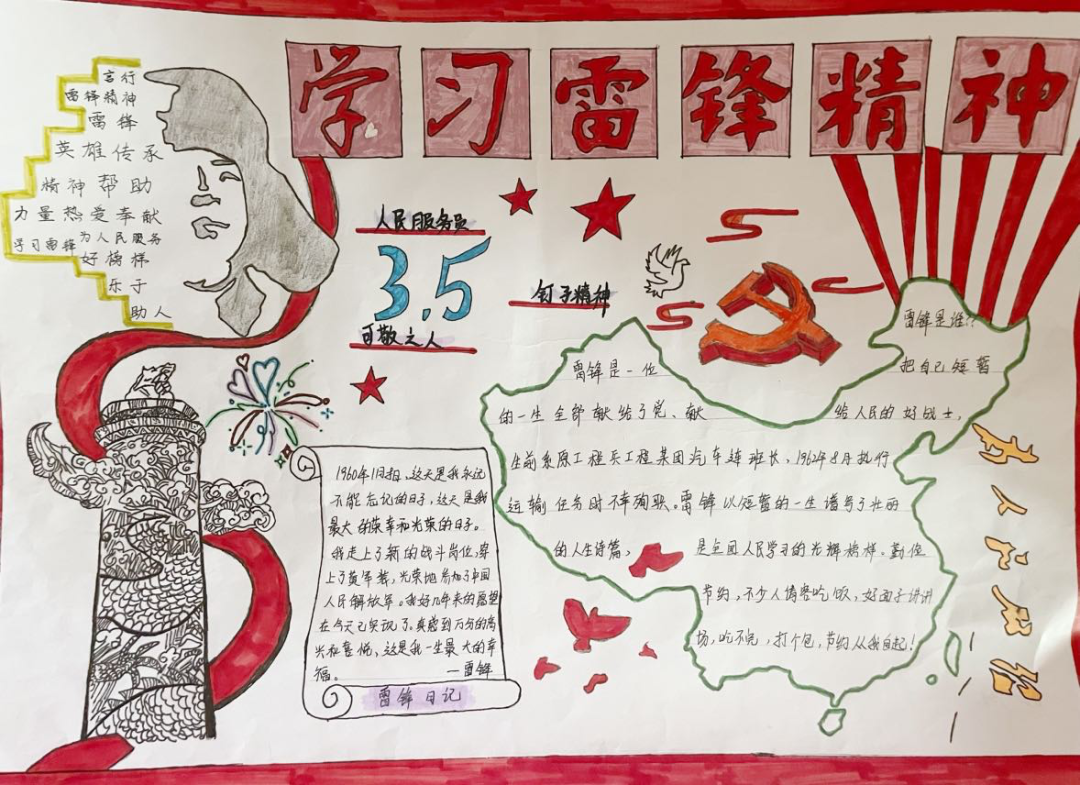 学习雷锋精神
言行
雷锋精神
雷锋
英雄传承
精神帮助
力量热爱奉献
学习雷锋为人民服务
好榜样
乐于
助人
人民服务员
3.5
可敬之人
钉子精神
雷锋是谁??
雷锋是一位 把自己短暂
的一生全部献给了党、献 给人民的好战士,
生前系原工程兵工程某团汽车连班长,1962年8月执行
运输任务时不幸殉职。雷锋以短暂的一生谱写了壮丽
的人生诗篇, 是全国人民学习的光辉榜样。勤俭
节约,不少人请客吃饭,好面子讲讲
场,吃不完,打个包,节约从我自起!
1960年1月8日,这天是我永记
不能忘记的日子,这天是我
最大的荣幸和光荣的日子。
我走上了新的战斗岗位,穿
上了黄军装,光荣地参加了中国
人民解放军。我好几年来的愿望
在今天已实现了。真感到万分的高
兴和喜悦,这是我一生最大的幸
福。 —雷锋
雷锋日记